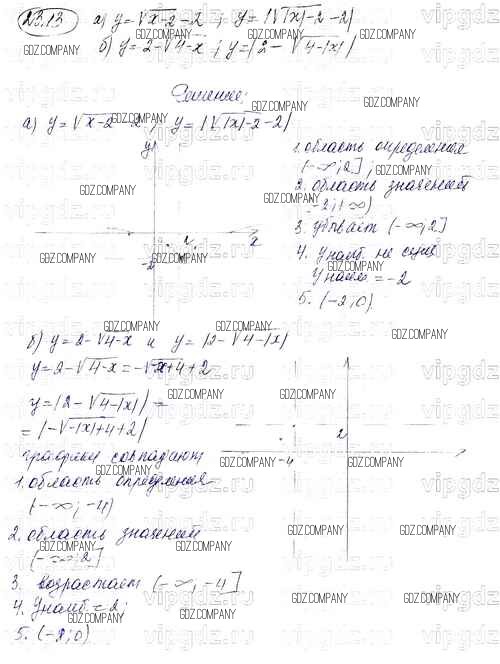 23.13 а) y=√x-2 -2 ; y=|√|x|-2 -2|
б) y=2-√4-x ; y=|2-√4-|x||
Решение:
а) y=√x-2 -2 ; y=|√|x|-2 -2|
1. область определения
(-∞; 2];
2. область значений
-2; +∞)
3. убывает (-∞, 2]
4. Yнаиб. не сущ.
Yнаим = -2
5. (-2; 0)
y
x
-2
б) y=2-√4-x и y=|2-√4-|x||
y=2-√4-x = -√-x+4+2
y=|2-√4-|x|| =
=|-√-|x|+4+2|
графики совпадают
1. область определения
(-∞; -4)
2. область значений
(-∞; 2]
3. возрастает (-∞, -4]
4. Yнаиб = 2;
5. (-2; 0)
2
-4
GDZ.COMPANY
vipgdz.ru